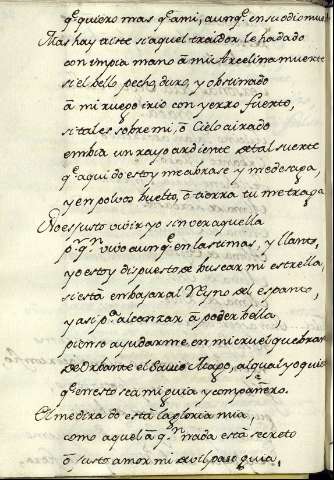 q̃ quiero mas q̃ a mi, aunq̃ en su odio mue
Mas hay triste si aquel traidor le ha dado
con impia mano â mi Arcelina muerte
si el bello pecho, duro, y obstinado
â mi ruego irio con yerro fuerte,
si tal es sobre mi, ô Cielo airado
embia un rayo ardiente de tal suerte
q̃ aqui do estoy me abrase y me deshaga,
y en polvos buelto, ô tierra tu me traga
No es justo vivir yo sin ver aquella
p.r q.n vivo aunq̃ en lastimas, y llanto,
yo estoy dispuesto de buscar mi estrella
si està en bajar al Reyno del espanto,
y asi p.a alcanzar â poder bella,
pienso ayudarme en mi cruel quebran
de Orbante el Savio Mago, al qual yo quie
q̃ en esto sea mi guia y compañero.
El me dira do està la gloria mia
como aquel â q.n nada està secreto
ô justo amor mi paso guia,